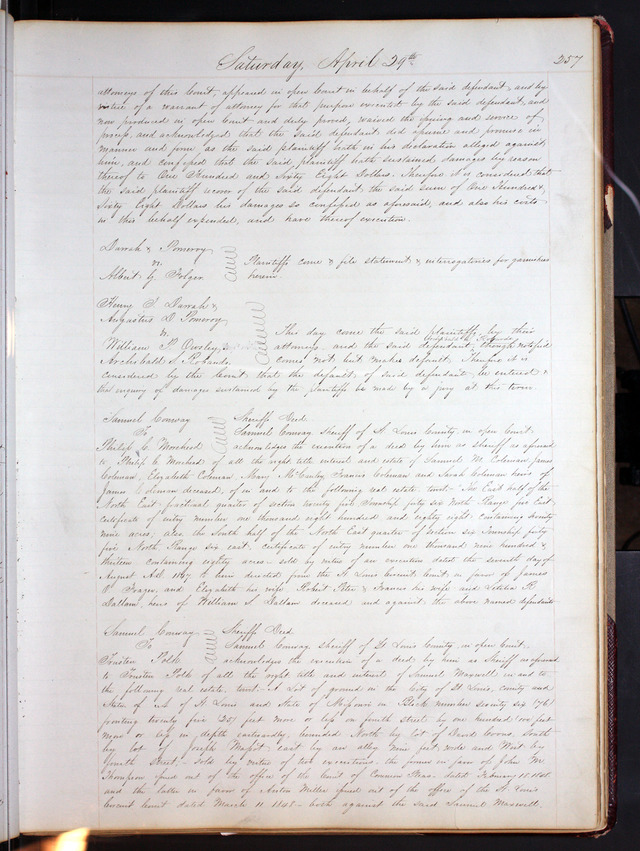 Saturday, April 29th 257
attorneys of this Court, appeared in open Court in behalf of the said defendant, and by
virtue of a warrant of attorney for that purpose executed by the said defendant, and
now produced in open Court and duly proved, waived the issuing and service of
process, and acknowledged that the said defendant did assume and promise in
manner and form, as the said plaintiff hath in his declaration alleged against
him, and confessed that the said plaintiff hath sustained damages by reason
thereof to One Hundred and Sixty Eight Dollars. Therefore it is considered that
the said plaintiff recover of the said defendant the said sum of One Hundred &
Sixty Eight Dollars his damages so confessed as aforesaid, and also his costs
in this behalf expended, and have thereof execution.
Darrah & Pomeroy
vs
Plaintiffs come & file statement & interrogatories for garnishees
Albert G. Folger
herein
Henry S. Darrah &
Augustus D. Pomeroy
vs
This day come the said plaintiffs by their
William P. Owsley &
attorney and the said defendant though notified
Archibald S. Rolands
comes not but makes default. Therefore it is
considered by the Court that the default of said defendant be entered &
that inquiry of damages sustained by the plaintiffs be made by a jury at this term
Samuel Conway
Sheriffs Deed.
To
Samuel Conway Sheriff of St Louis County, in open Court
Philip C. Morehead
acknowledges the execution of a deed by him as sheriff as aforesaid
to Philip C. Morehead of all the right title interest and estate of Samuel M. Coleman, James
Coleman, Elizabeth Coleman, Mary McCauley Francis Coleman and Sarah Coleman heirs of
James Coleman deceased, of in and to the following real estate towit: The East half of the
North East fractional quarter of section twenty five Township forty six North Range five East
certificate of entry number one thousand eight hundred and eighty eight containing seventy
nine acres; also the South half of the North East quarter of Section six Township forty
five North Range six east, certificate of entry number one thousand nine hundred &
thirteen containing eighty acres - sold by virtue of an execution dated the seventh day of
August A.D. 1847, to him directed from the St Louis Circuit Court, in favor of James
Frazer, and Elizabeth his wife Robert Peter & Frances his wife and Letitia R.
Dallam, heirs of William S. Dallam deceased and against the above named defendants
Samuel Conway
Sheriffs Deed
To
Samuel Conway sheriff of St Louis County, in open Court
Trusten Polk
acknowledges the execution of a deed by him as Sheriff as aforesaid
to Trusten Polk of all the right title and interest of Samuel Maxwell in and to
the following real estate, towit - A Lot of ground in the City of St Louis, county and
State of St Louis and State of Missouri in Block number seventy six (76)
fronting twenty five (25) feet more or less on fourth street by one hundred feet
more or less in depth eastwardly, bounded North by lot of David South
by lot of Joseph east by an alley nine feet wide and West by
fourth Street, - Sold by virtue of two executions the former in favor of John M.
Thompson issued out of the office of the Court of Common Pleas dated February 18, 1848
and the latter in favor of Anton Miller issued out of the office of the St Louis
Circuit Court dated March 11 1848 - both against the said Samuel Maxwell.